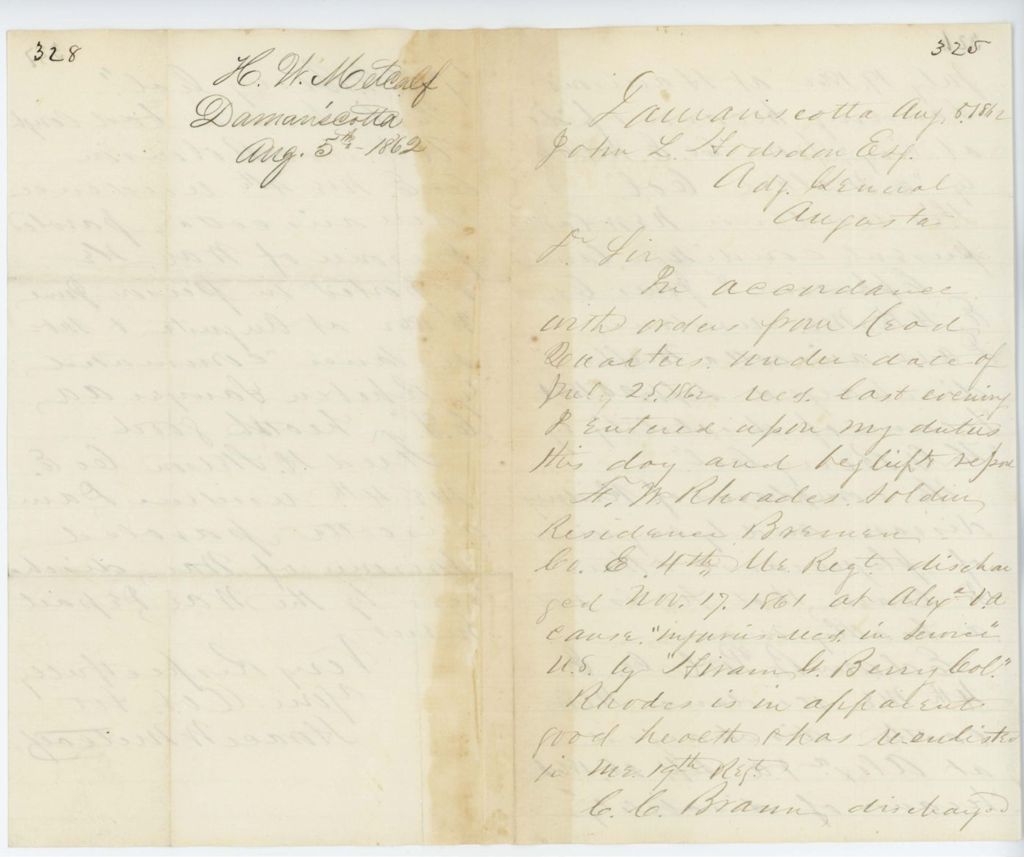 328
H. W. Metcalf
Damariscotta
Aug. 5th - 1862
325
Damariscotta Aug. 5. 1862
John L. Hodsdon Esq.
Adj. General
Augusta
Dr Sir
In accordance
with orders from Head
Quarters under date of
July 25. 1862 recd. last evening
I entered upon my duties
this day and beg lief to repor
F. W. Rhoades. Soldier,
Residence Bremen
Co. E. 4th, Me. Regt. dischar
ged Nov. 17. 1861 at Alexa Va
cause, "injuries recd. in Service"
U.S. by "Hiram G. Berry Col."
Rhodes is in apparent
good health & has reenlisted
in Me. 19th Regt.
C. C. Braun, discharged